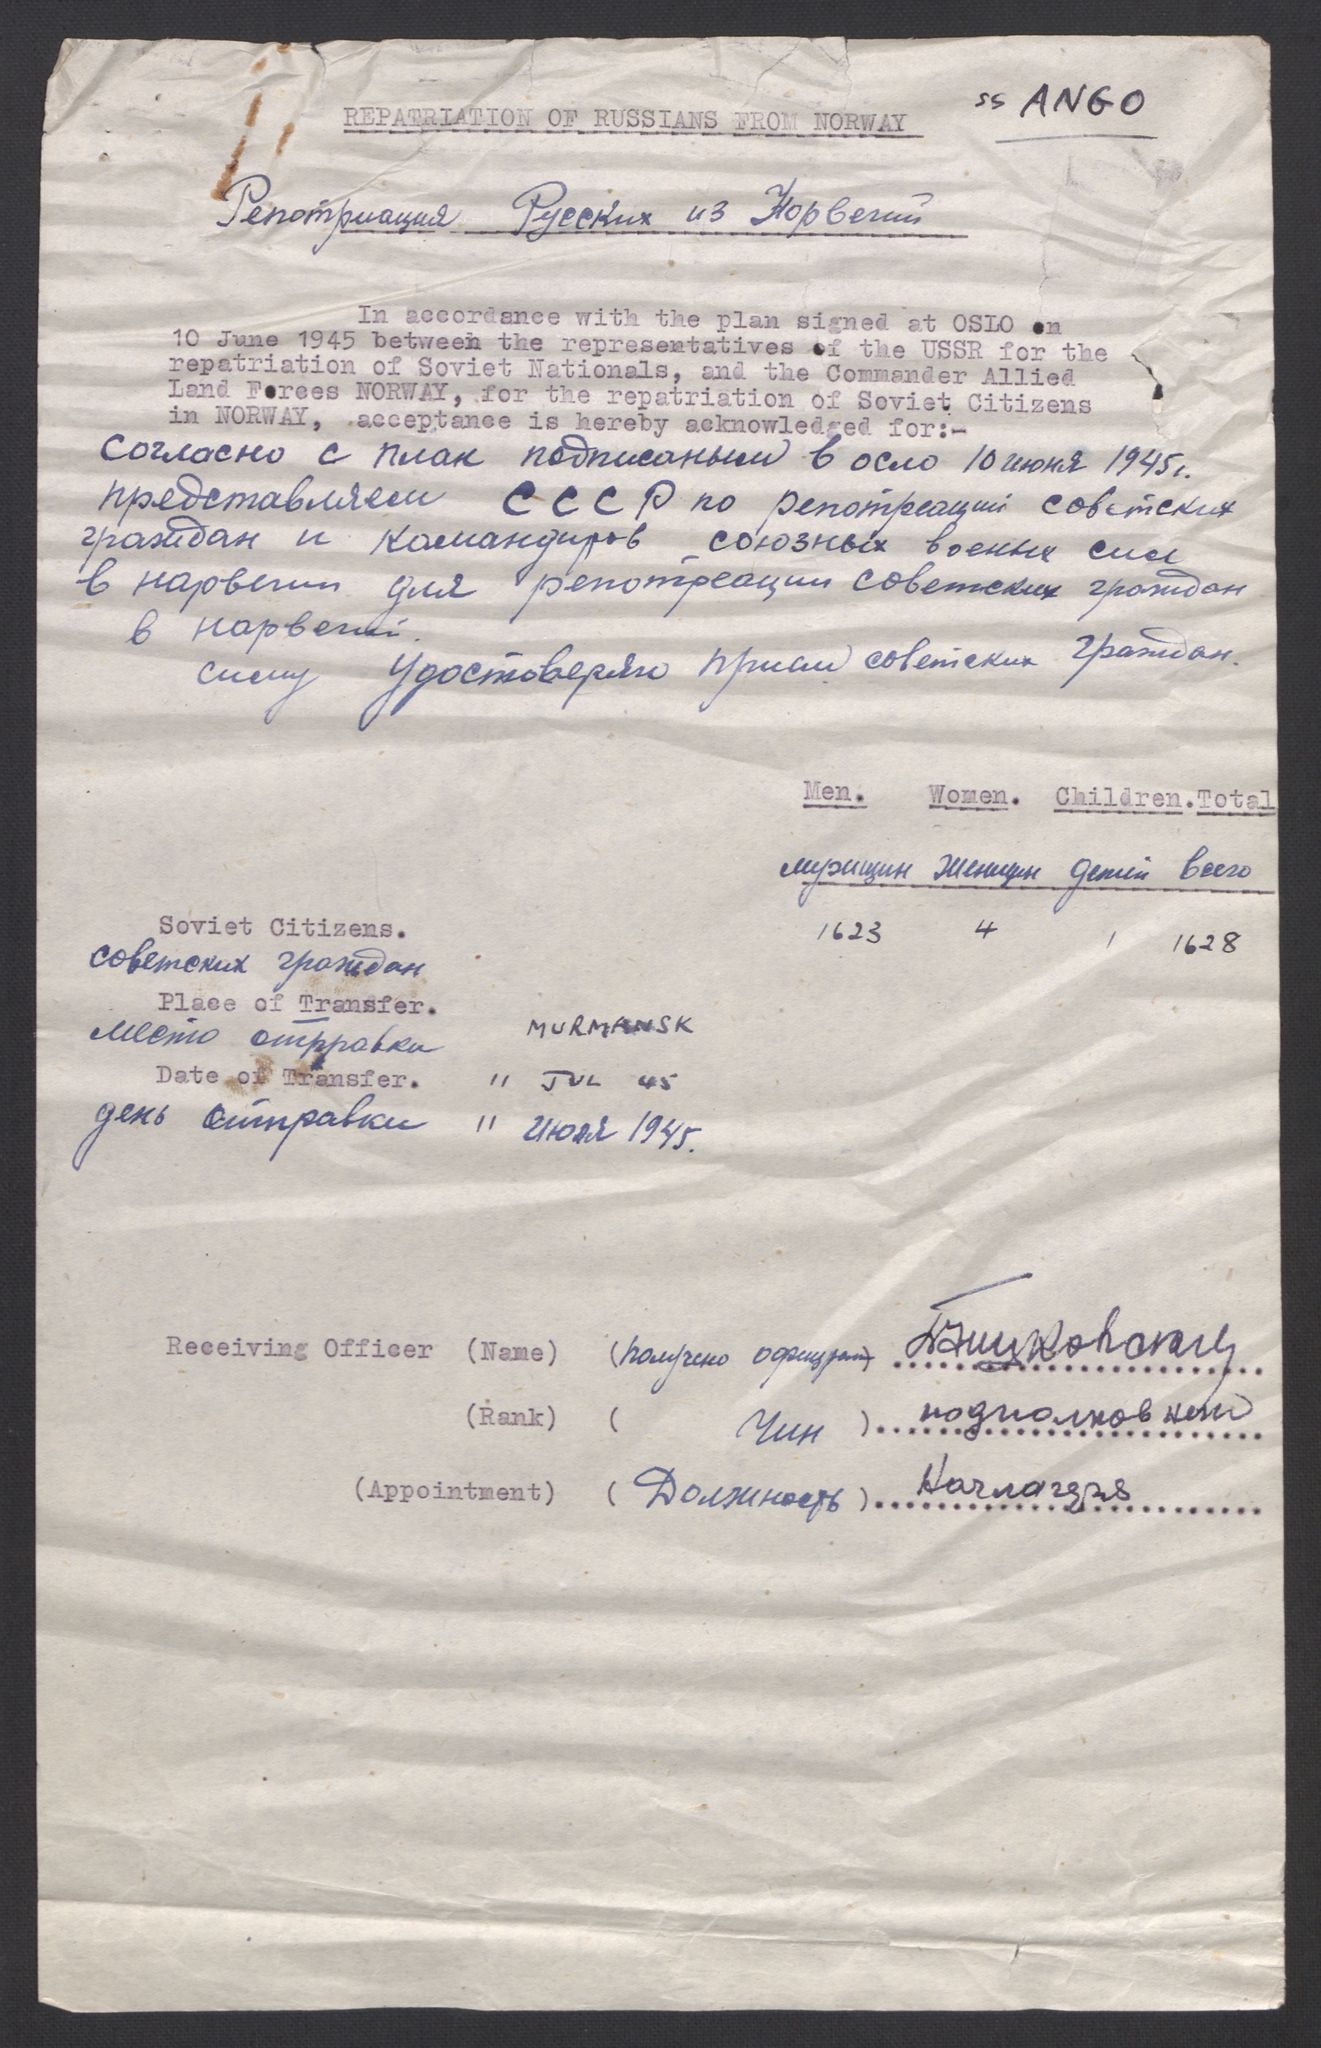 ss ANGO
REPATRIATION OF RUSSIANS FROM NORWAY
Репотриация Русских из Норвегий
In accordance with the plan signed at OSLO on
10 June 1945 between the representatives of the USSR for the
repatriation of Soviet Nationals, and the Commander Allied
Land Forces NORWAY, for the repatriation of Soviet Citizens
in NORWAY, acceptance is hereby acknowledged for:-
согласно с план подписаным в осло 10 июня 1945 г.
представляем СССР по репотреаций советских
граждан и командиров союзных военых сил
в нарвегии для репотреации советских граждан
в нарвегий.
симу удостоверяю прием советских граждан.
Men. Women. Children. Total
мущин женщин детей всего
Soviet Citizens. 1623 4 1 1628
советских граждан
Place of Transfer.
место отправки MURMANSK
Date of Transfer. " JUL 45
день отправки " июля 1945.
Receiving Officer (Name) (получено офицером)
(Rank) ( Чин ) подполковник
(Appointment) ( Должность ) Начлагеря